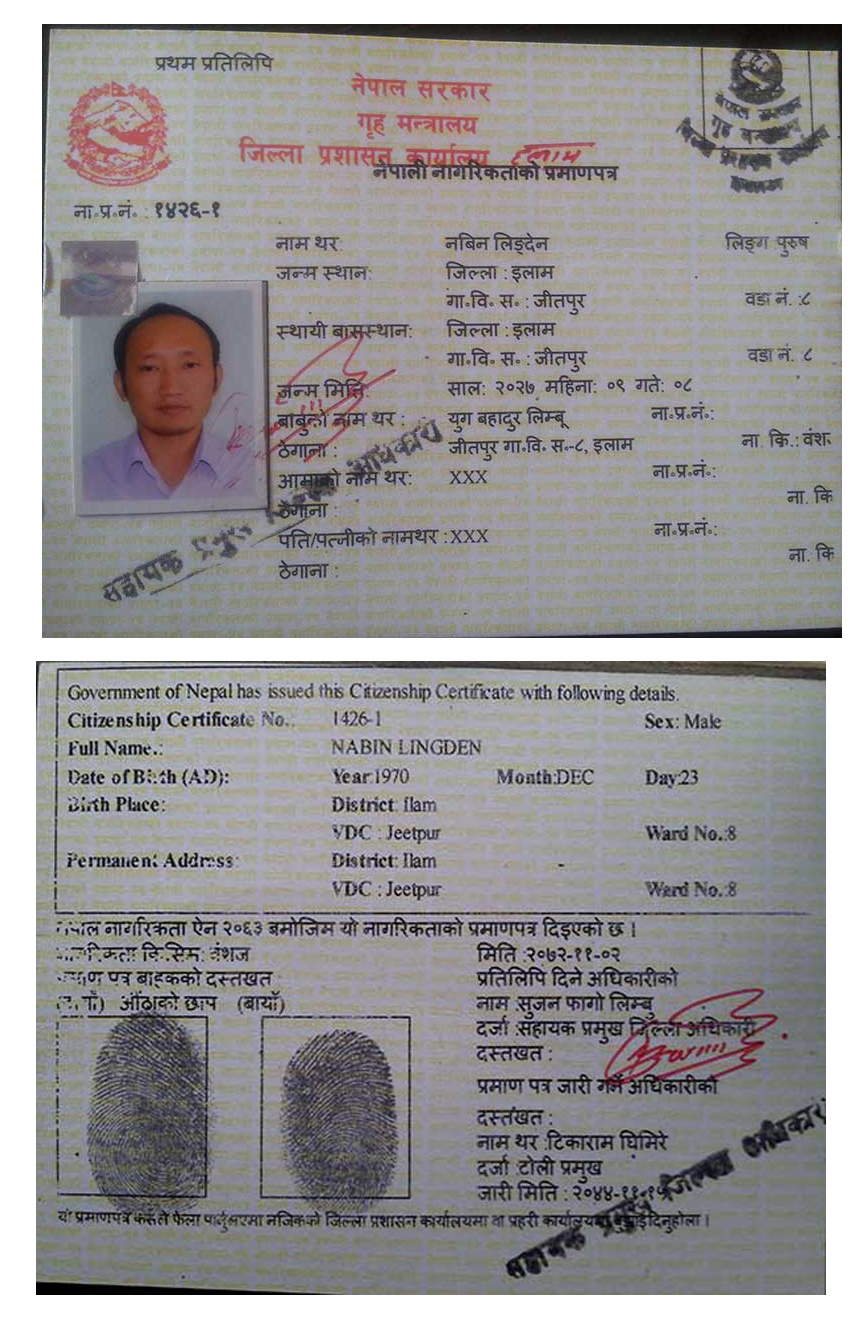 प्रथम प्रतिलिपि
नेपाल सरकार
गृह मन्त्रालय
जिल्ला प्रशासन कार्यालय इलाम
नेपाली नागरिकताको प्रमाणपत्र
ना॰प्र॰नं॰ : १४२६-१
नाम थर: नबिन लिङ्देन लिङ्ग पुरुष
जन्म स्थान: जिल्ला : इलाम
गा॰वि॰ स॰ : जीतपुर वडा नं. :८
स्थायी बासस्थान: जिल्ला : इलाम
गा॰वि॰ स॰ : जीतपुर वडा नं. ८
जन्म मिति: साल: २०२७ महिना: ०९ गते: ०८
बाबुको नाम थर : युग बहादुर लिम्बू ना॰प्र॰नं॰:
ठेगाना : जीतपुर गा॰वि॰ स॰-८, इलाम ना. कि.: वंश
आमाको नाम थर: XXX ना॰प्र॰नं॰:
ठेगाना : ना. कि
पति/पत्नीको नामथर : XXX ना॰प्र॰नं॰:
ठेगाना : ना. कि
सहायक प्रमुख जिल्ला अधिकारी
Government of Nepal has issued this Citizenship Certificate with following details.
Citizenship Certificate No.: 1426-1 Sex: Male
Full Name.: NABIN LINGDEN
Date of Birth (AD): Year:1970 Month:DEC Day:23
Birth Place: District: Ilam
VDC : Jeetpur Ward No.:8
Permanent Address: District: Ilam
VDC : Jeetpur Ward No.:8
नेपाल नागरिकता ऐन २०६३ बमोजिम यो नागरिकताको प्रमाणपत्र दिइएको छ ।
नागरिकता किसिम: वंशज मिति :२०७२-११-०२
प्रमाण पत्र बाहकको दस्तखत प्रतिलिपि दिने अधिकारीको
(दायाँ) औंठाको छाप (बायाँ) नाम :सुजन फागो लिम्बु
दर्जा :सहायक प्रमुख जिल्ला अधिकारी
दस्तखत :
प्रमाण पत्र जारी गर्ने अधिकारीको
दस्तखत :
नाम थर :टिकाराम घिमिरे
दर्जा :टोली प्रमुख
जारी मिति : २०४४-११-१५
यो प्रमाणपत्र कसैले फेला पार्नुभएमा नजिकको जिल्ला प्रशासन कार्यालयमा वा प्रहरी कार्यालयमा बुझाई दिनुहोला ।
सहायक प्रमुख जिल्ला अधिकारी